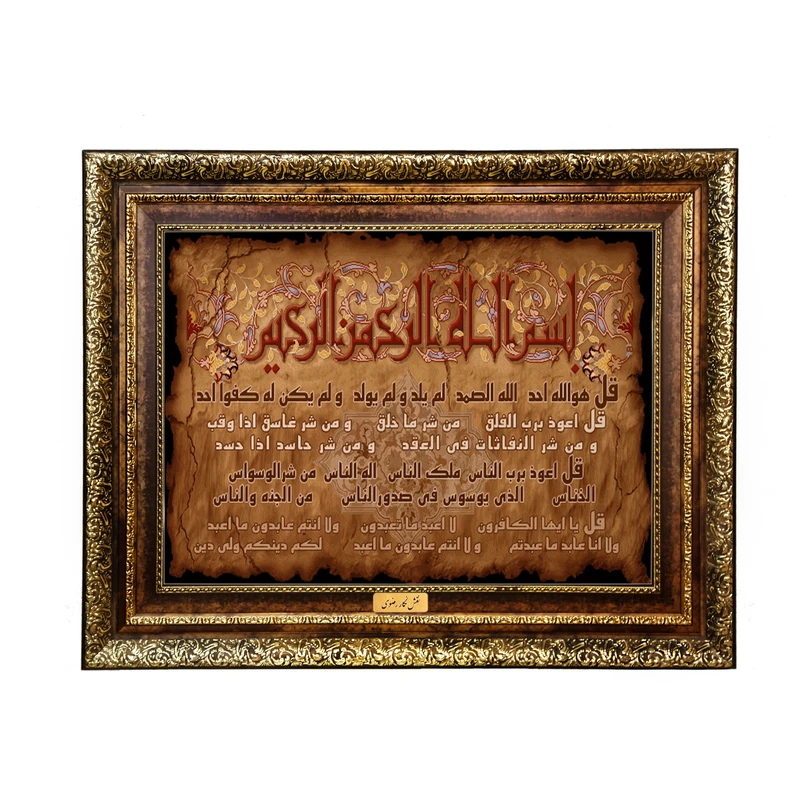 بسم الله الرحمن الرحیم
قل هوالله احد الله الصمد لم یلد و لم یولد و لم یکن له کفوا احد
قل اعوذ برب الفلق من شر ما خلق و من شر غاسق اذا وقب
و من شر النفاثات فی العقد و من شر حاسد اذا حسد
قل اعوذ برب الناس ملک الناس اله الناس من شرالوسواس
الخناس الذی یوسوس فی صدورالناس من الجنه والناس
قل یا ایها الکافرون لا اعبد ما تعبدون ولا انتم عابدون ما اعبد
ولا انا عابد ما عبدتم و لا انتم عابدون ما اعبد لکم دینکم ولی دین
نقش نگار رضوی